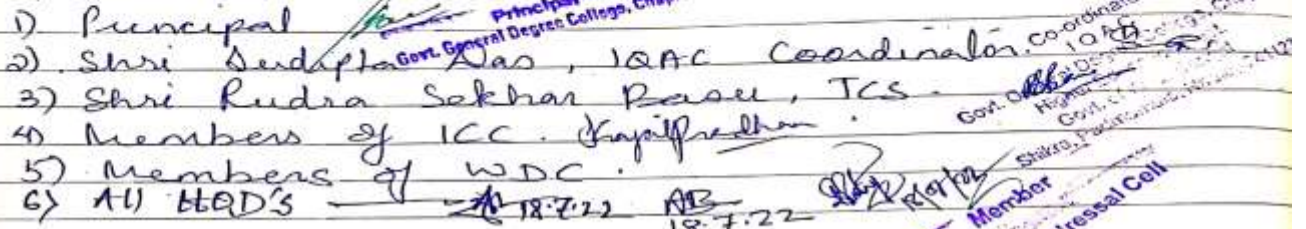 1) Principal Principal
Govt. General Degree College, Chap
2) Shri Sudipta Das, IQAC Coordinator. Co-ordinator
IQAC
3) Shri Rudra Sekhar Basu, TCS.
4) Members of ICC.
5) Members of WDC.
6) All HOD'S 18.7.22 AB
18.7.22
Member
ressal Cell